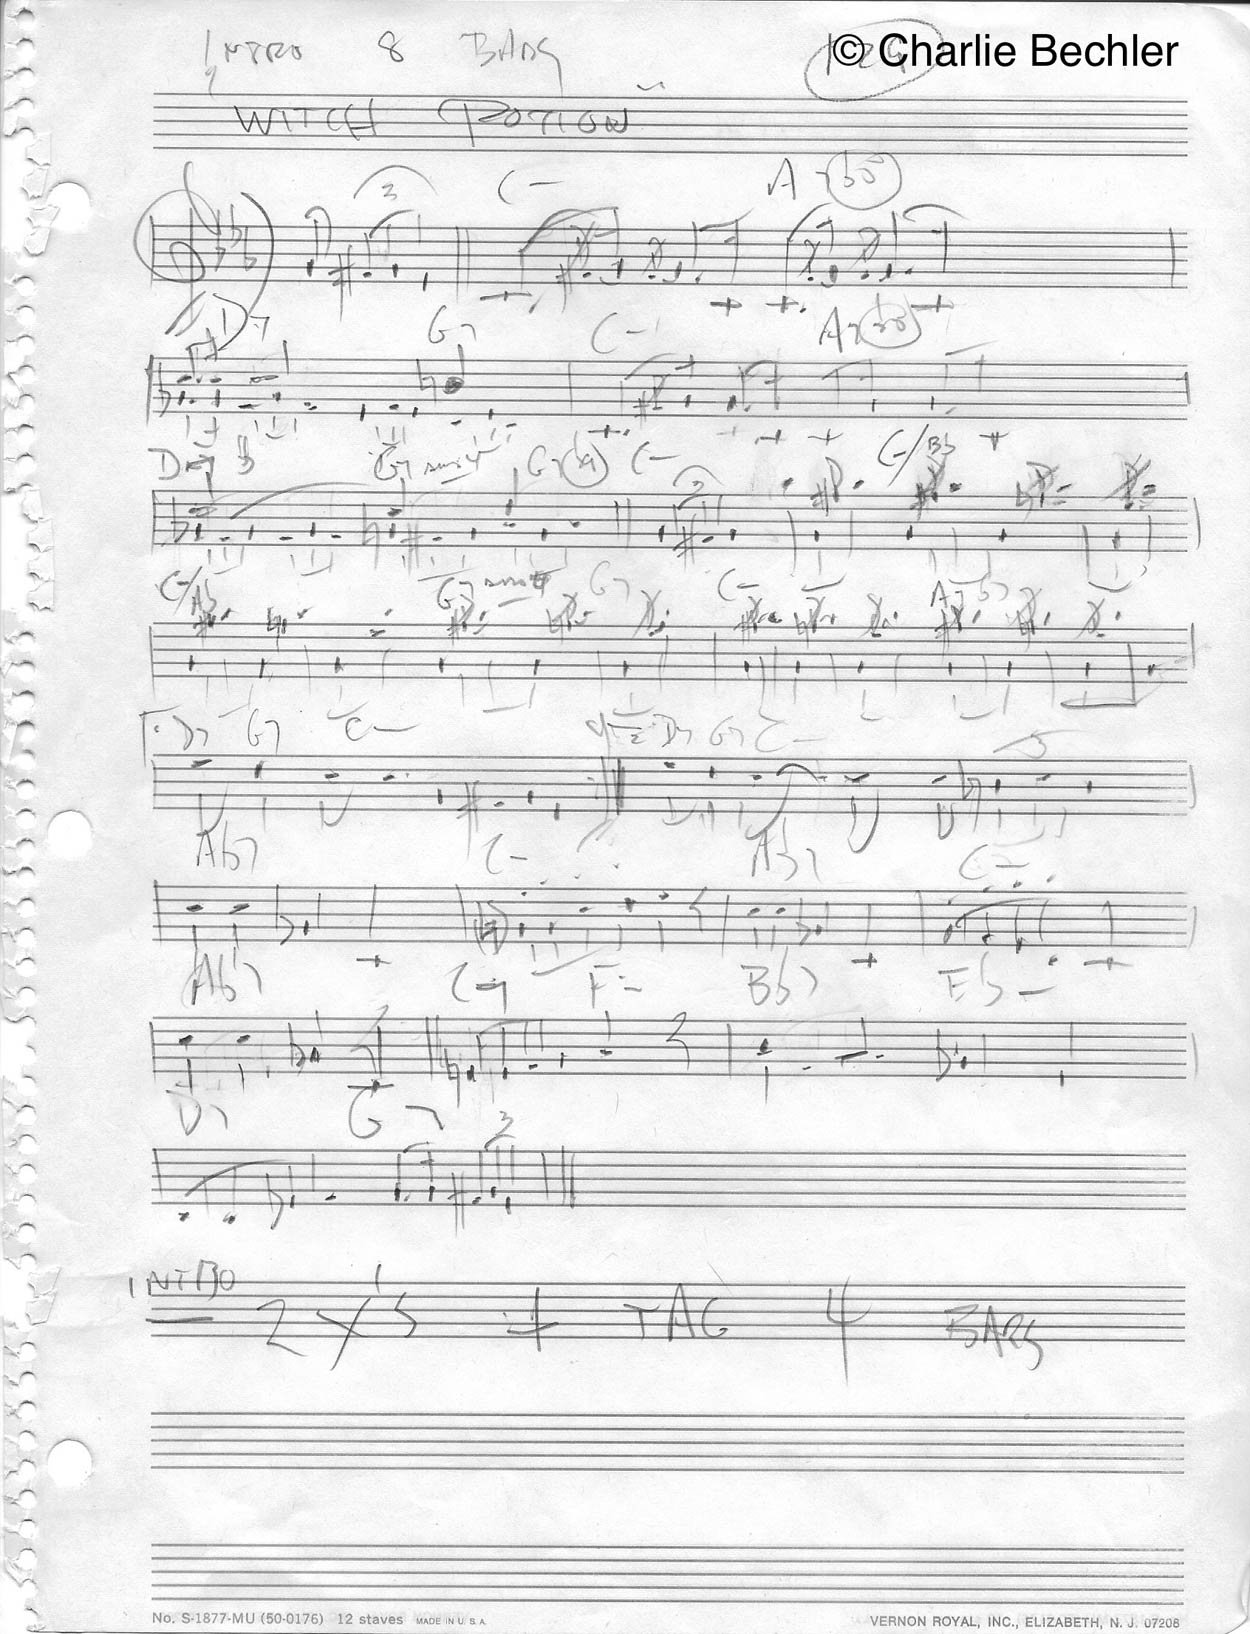 INTRO 8 BARS
© Charlie Bechler
WITCH POTION
3 C- A-7(b5)
D-7 G7 C- A-7(b5)
D-7 G7 sus4 G7(b9) C- C-/Bb
3
C-/Ab G7 sus4 G7 C- A-7b5
1. D7 G7 C- 2. D7 G7 C- 3
Ab7 C- Ab7 C-
Ab7 C-7 F- Bb7 Eb-
D7 G7 3
INTRO
2 X'S + TAG 4 BARS
No. S-1877-MU (50-0176) 12 staves MADE IN U. S. A.
VERNON ROYAL, INC., ELIZABETH, N. J. 07206